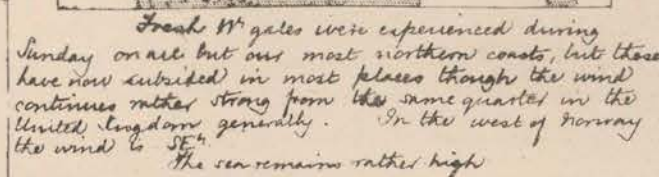 Fresh Wly gales were experienced during
Sunday on all but our most northern coasts, but these
have now subsided in most places though the wind
continues rather strong from the same quarter in the
United Kingdom generally. In the west of Norway
the wind is SEly
The sea remains rather high